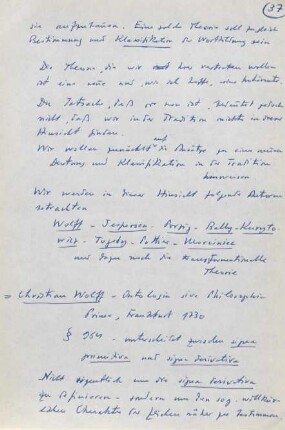 37
sie aufzubauen. Eine solche Theorie soll zugleich
Bestimmung und Klassifikation der Wortbildung sein
Die Theorie, die wir hier vertreten wollen
ist eine neue und, wie ich hoffe, eine
Die Tatsache, daß sie neu ist, bedeutet jedoch
nicht, daß wir in der Tradition nichts in dieser
Hinsicht finden.
Wir wollen zunächst auf die Ansätze zu einer neuen
Deutung und Klassifikation in der Tradition
hinweisen
Wir werden in dieser Hinsicht folgende Autoren
betrachten
Wolff - Jespersen - Porzig - Bally - Kuryło-
wicz - Togeby - Pottier -
und dazu noch die transformationelle
Theorie
= Christian Wolff - Ontologia sive Philosophia
Prima, Frankfurt 1730
§ 964 - unterscheidet zwischen signa
primitiva und signa derivativa
Nicht eigentlich um die signa derivativa
zu definieren - sondern um den sog. willkür-
lichen Charakter der Zeichen näher zu bestimmen.